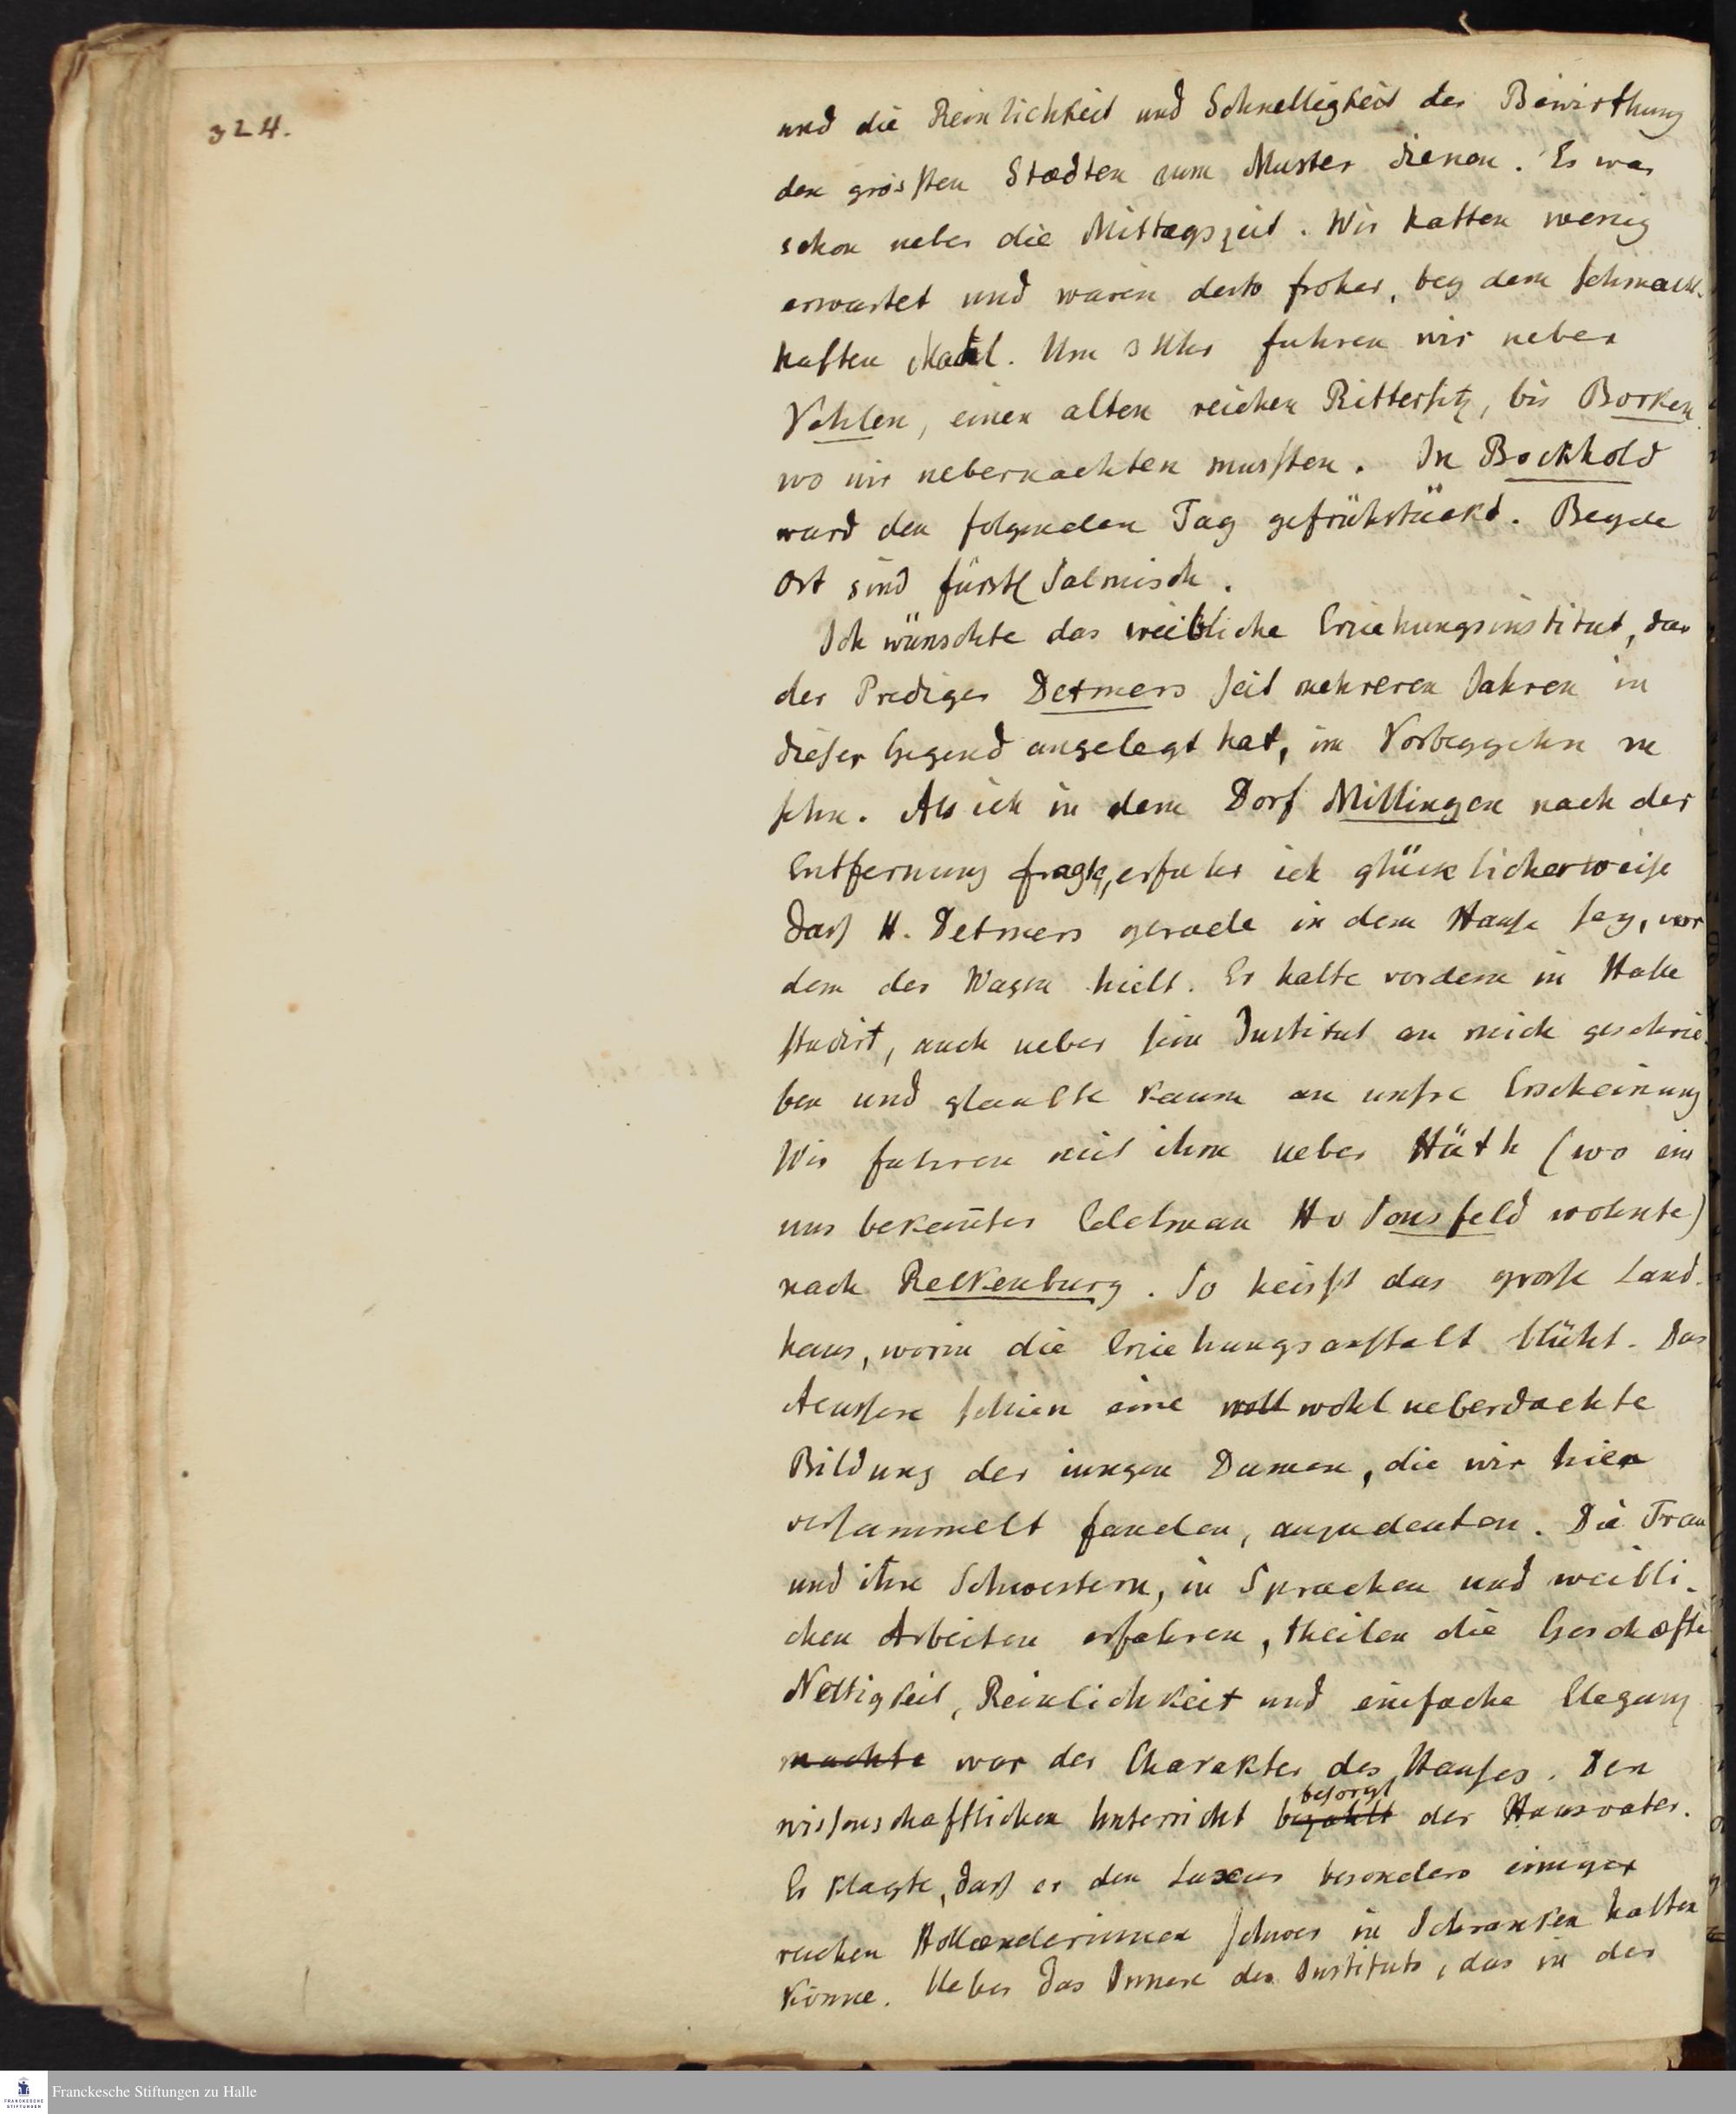 324.
und die Reinlichkeit und Schnelligkeit der Bewirthung
den grössten Stædten zum Muster dienen. Es war
schon ueber die Mittagszeit. Wir hatten wenig
erwartet und waren desto froher, bey dem schmack-
haften Mahl. Um 3 Uhr fuhren wir ueber
Vehlen, einen alten reichen Rittersitz, bis Borken
wo wir uebernachten mussten. In Bockhold
ward den folgenden Tag gefrühstückt. Beyde
Ort sind fürstl Salmisch.
Ich wünschte das weibliche Erziehungsinstitut, das
der Prediger Detmers seit mehreren Jahren in
dieser Gegend angelegt hat, im Vorbeygehn zu
sehn. Als ich in dem Dorf Millingen nach der
Entfernung fragte, erfuhr ich glücklicherweise
daß H. Detmers gerade in dem Hause sey, vor
dem der Wagen hielt. Er hatte vordem in Halle
studirt, auch ueber sein Institut an mich geschrie-
ben und glaubte kaum an unsre Erscheinung
Wir fuhren mit ihm ueber Hüth (wo ein
uns bekan̄ter Edelman Hv Sonsfeld wohnte)
nach Reckenburg. So heisst das grosse Land-
haus, worin die Erziehungsanstalt blüht. Das
Aeussere schien eine woll wohl ueberdachte
Bildung der iungen Damen, die wir hier
versammelt fanden, anzudeuten. Die Frau
und ihre Schwestern, in Sprachen und weibli-
chen Arbeiten erfahren, theilen die Geschæfte
Nettigkeit, Reinlichkeit und einfache Eleganz
machte war der Charakter des Hauses. Den
besorgt
wissenschaftlichen Unterricht bezahlt der Hausvater.
Er klagte, daß er den Luxus besonders einiger
reichen Hollænderinnen schwer in Schranken halten
könne. Ueber das Innere des Instituts, das in der
Franckesche Stiftungen zu Halle
FRANCKESCHE
STIFTUNGEN